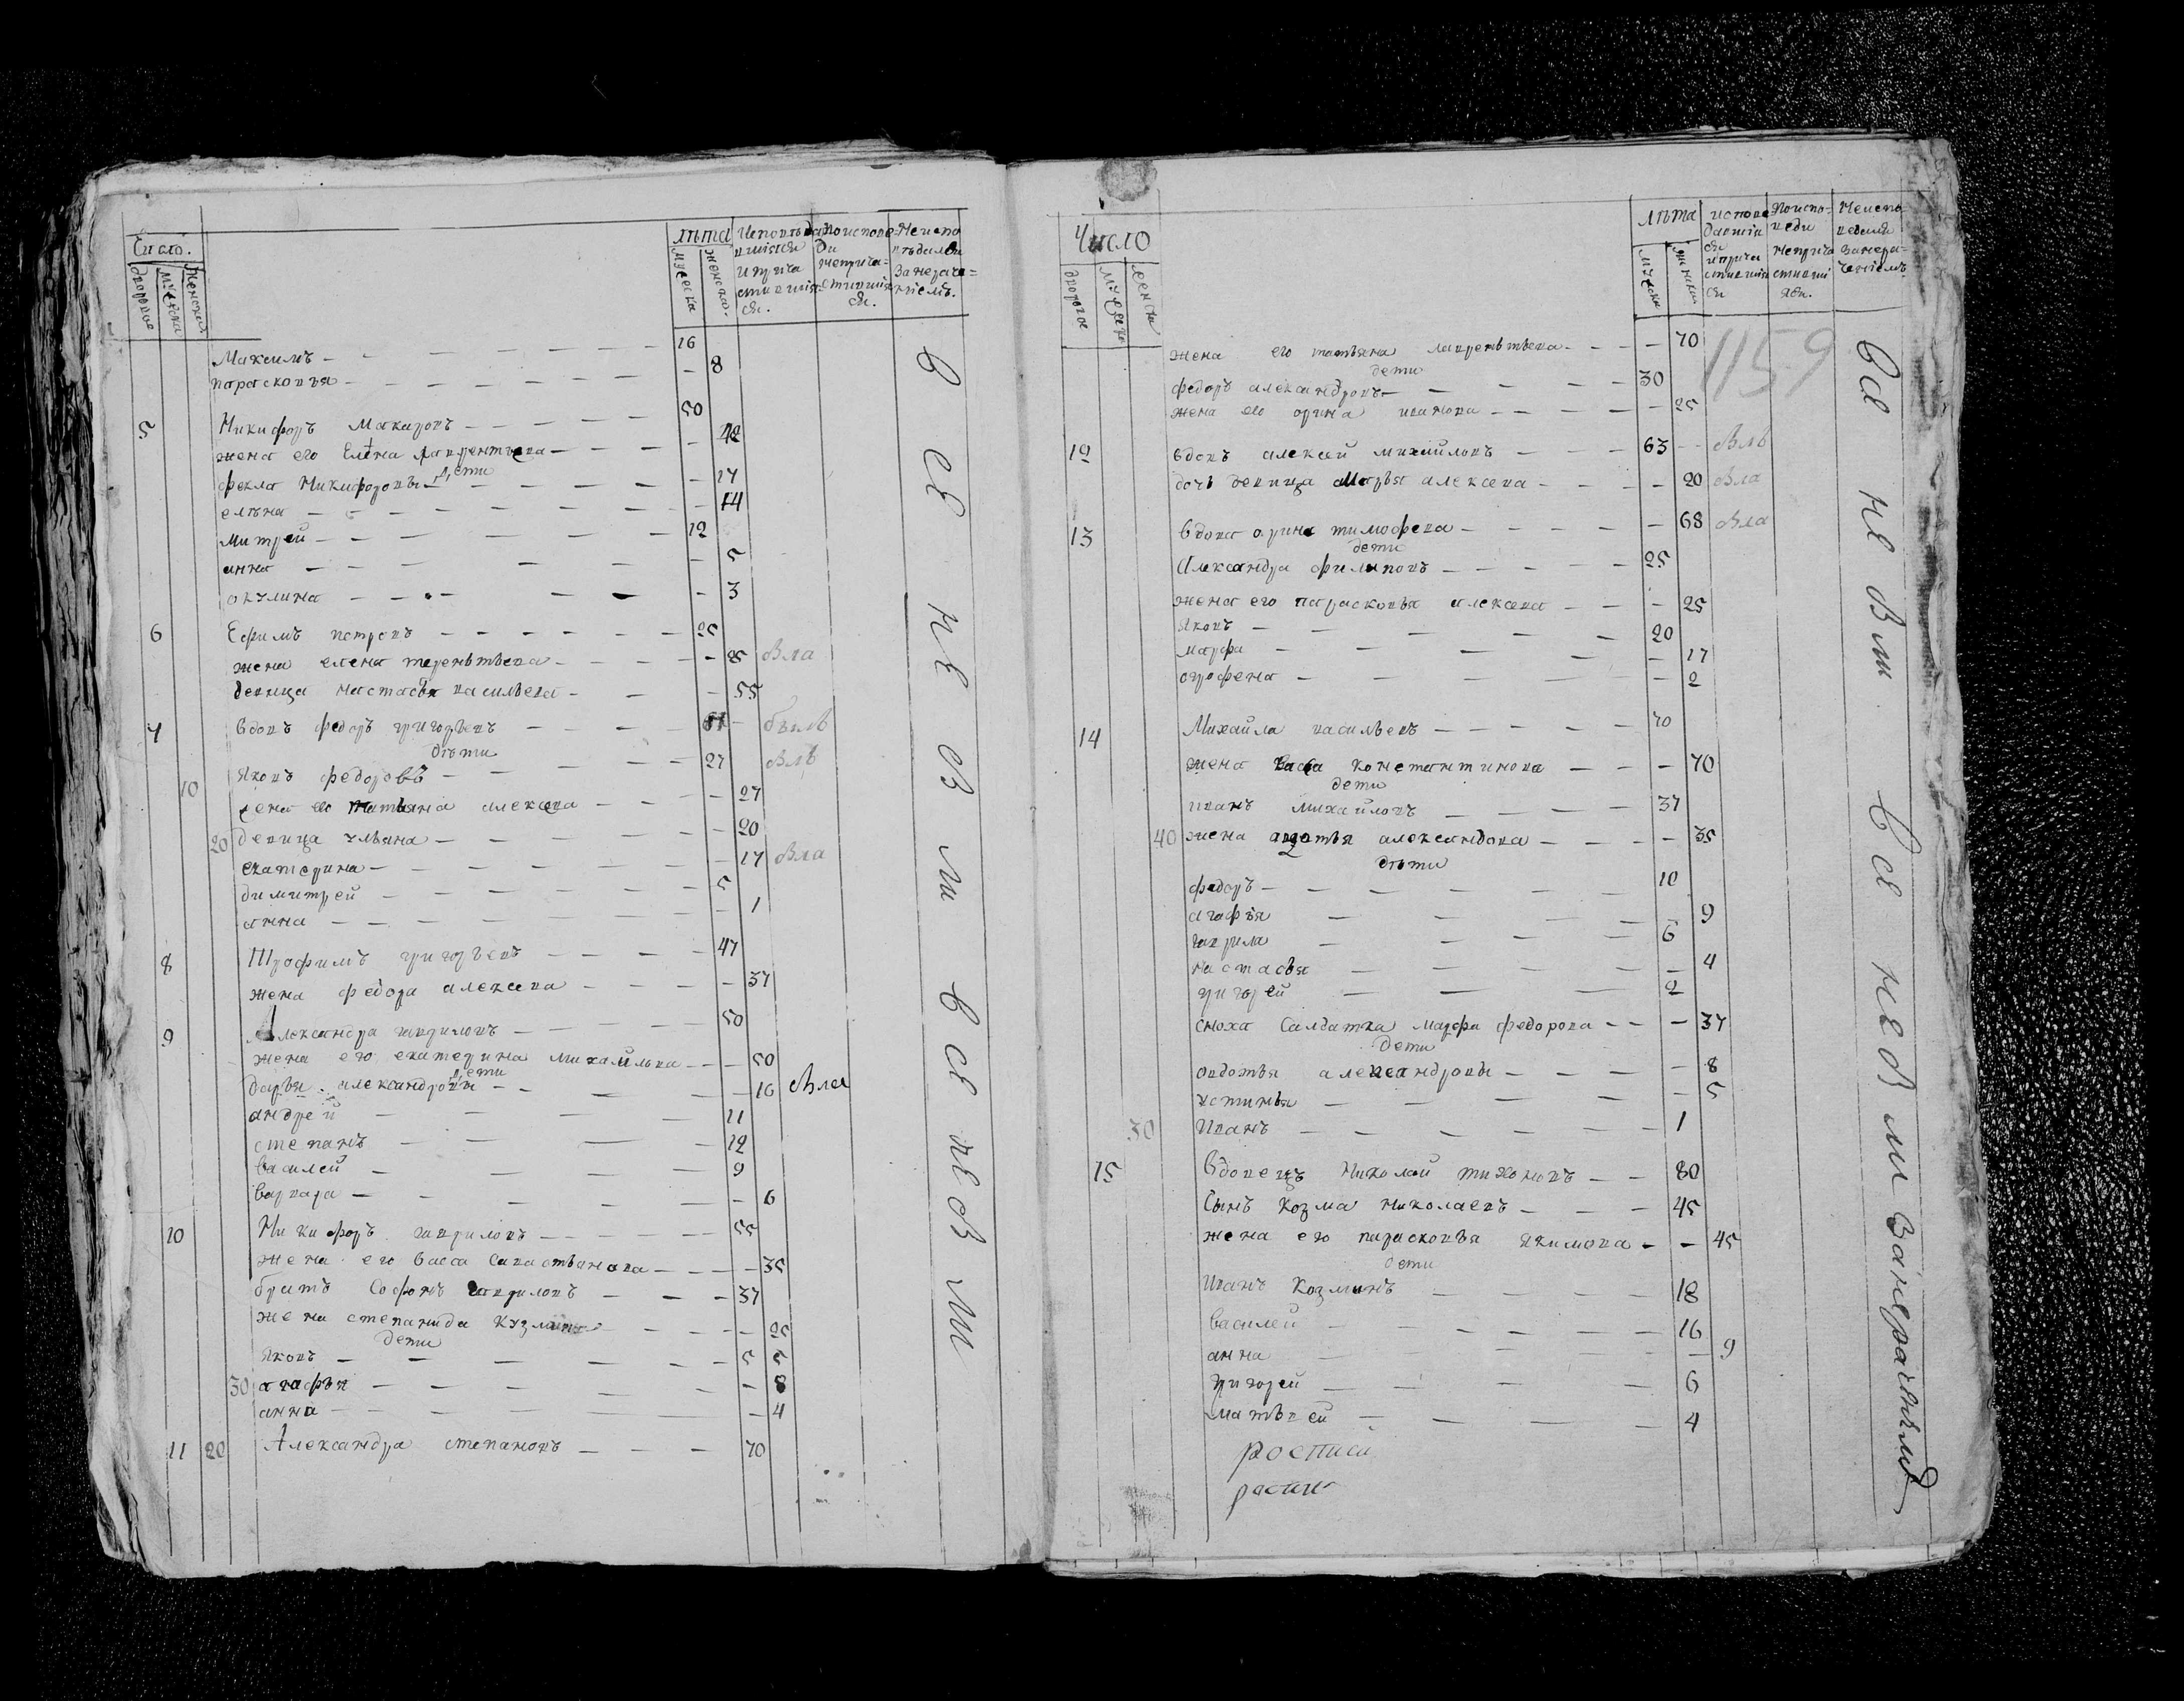 Число.
дворовое
мужеска
женскаго
лѣта
мужеска
женскаго.
Исповѣда
вшіяся
и прича
стившія
ся.
По испове
ди
неприча=
стившія
ся.
Неиспо
вѣдалси
за нераче=
ніемъ.
Максимъ 16
параскопья 8
5 Никифоръ Макаровъ 50
жена его Елена лаврентьева 42
дети
фекла Никифоровы 17
елѣна 14
митрей 12
анна 5
окулина 3
6 Ефимъ петровъ 25
жена елена терентьева 25 была
девица настасья васильева 55
7 вдовъ федоръ григорьевъ быль
дѣти
10 яковъ федоровъ 27 быль
жена его татьяна алексева 27
20 девица ульяна 20
екатерина 17 была
димитрей 5
анна 1
8 Трофимъ григорьевъ 47
жена федора алексева 37
9 Александра гавриловъ 50
жена его екатерина михайлова 50
дети
дарья александровы 16 была
андрей 11
степанъ 12
василей 9
варвара 6
10 Никифоръ гавриловъ 55
жена его васса савастьянова 35
братъ Софонъ гавриловъ 37
жена степанида кузмина 25
дети
яковъ 5
30 агафья 8
анна 4
11 20 Александра степановъ 70
все не были все небыли
Число
дворовое
мужеска
женска
лѣта
мужеска
женскаго
испове
давшія
ся
и прича
стившія
ся
По испо=
веди
неприча
стивши
яся.
Неиспо
ведалися
за нера=
ченіемъ
1159
жена его татьяна лаврентьева 70
дети
федоръ александровъ 30
жена его орина иванова 25
12 вдовъ алексей михайловъ 63 быль
дочь девица Марья алексева 20 была
13 вдова орина тимофева 68 была
дети
Александра филиповъ 25
жена его парасковья алексева 25
яковъ 20
марфа 17
огрофена 2
14 Михайла васильевъ 70
жена васса константинова 70
дети
иванъ михайловъ 37
40 жена александова 35
дѣти
федоръ 10
агофья 9
гаврила 6
настасья 4
григорей 2
сноха салдатка марфа федорова 37
дети
овдотья александровы 8
устинья 5
30 Иванъ 1
15 вдовецъ Николай тихоновъ 80
Сынъ козма николаевъ 45
жена его парасковья якимова 45
дети
Иванъ козминъ 18
василей 16
анна 9
григорей 6
матьвей 4
росписи
роспи
все не были все небыли за нерачениемъ